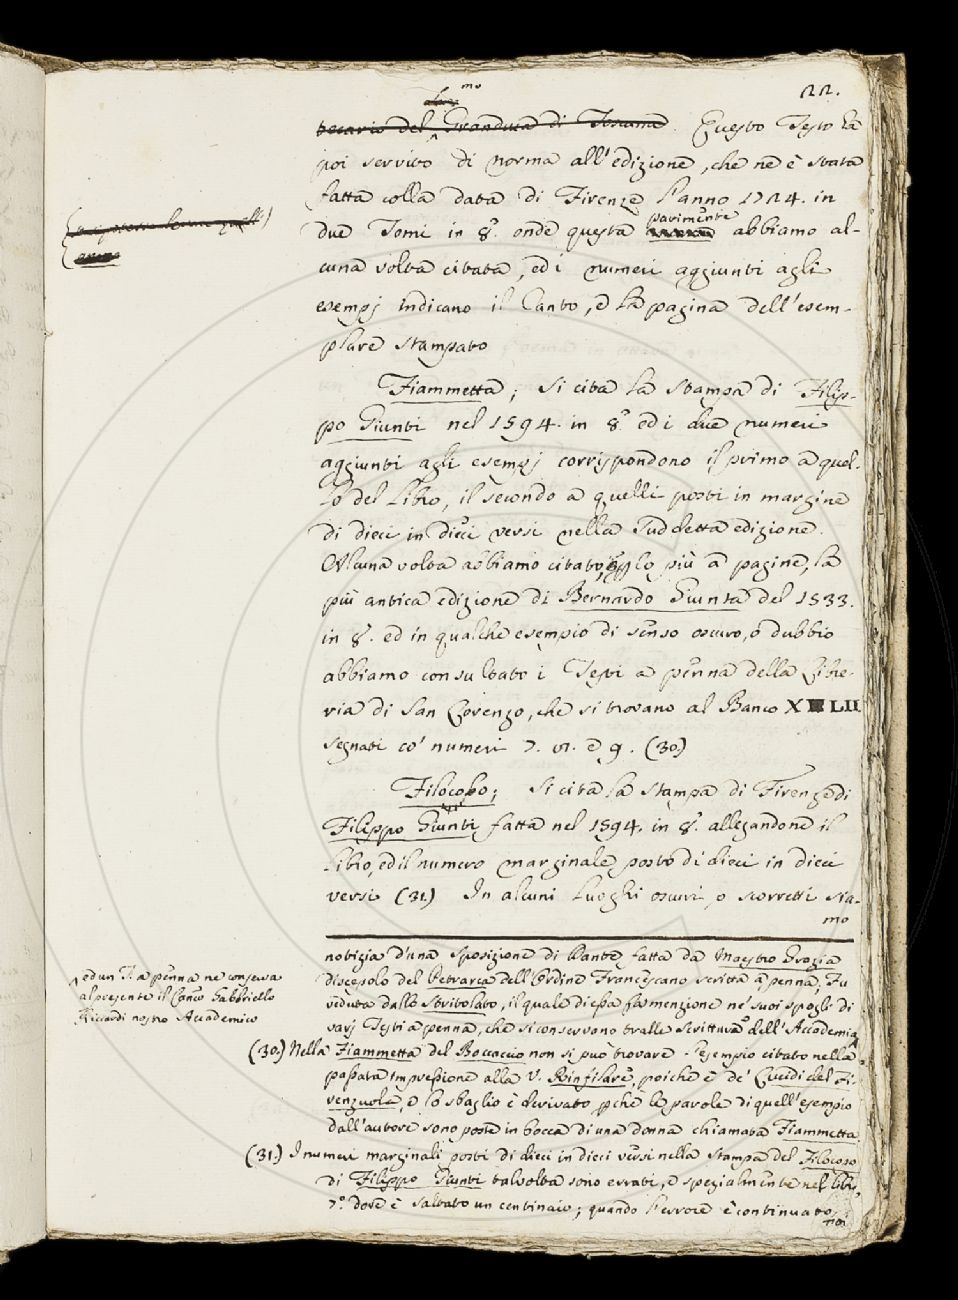 22.
mo
tecario del Granduca di Toscana. Questo Testo ha
poi servito di norma all'edizione, che ne è stata
fatta colla data di Firenze l'anno 1724. in
due Tomi in 8.° onde questa parimente abbiamo al-
cuna volta citata, ed i numeri aggiunti agli
esempj indicano il Canto, e la pagina dell'esem-
plare stampato
Fiammetta; si cita la stampa di Filip-
po Giunti nel 1594. in 8.° ed i due numeri
aggiunti agli esempj corrispondono il primo a quel-
lo del Libro, il secondo a quelli posti in margine
di dieci in dieci versi nella suddetta edizione.
Alcuna volta abbiamo citato, lo più a pagine, la
più antica edizione di Bernardo Giunta del 1533.
in 8.° ed in qualche esempio di senso oscuro, o dubbio
abbiamo consultato i Testi a penna della Libre-
ria di San Lorenzo, che si trovano al Banco XLII
segnati co' numeri 7. VI. e 9. (30.)
Filocopo; si cita la stampa di Firenze di
Filippo Giunti fatta nel 1594. in 8.° allegandone il
libro, ed il numero marginale posto di dieci in dieci
versi (31.) In alcuni luoghi oscuri, o scorretti sia-
mo
notizia d'una sposizione di Dante fatta da Maestro Grazia
discepolo del Petrarca dell'Ordine Francescano scritta a penna, Fu
veduta dallo Stritolato, il quale di essa fa menzione ne' suoi spogli di
varj Testi a penna, che si conservono tralle scritture dell'Accademia
ed un T. a penna ne conserva
al presente il Can.co Gabbriello
Riccardi nostro Accademico
(30.) Nella Fiammetta del Boccaccio non si può trovare l'esempio citato nella
passata impressione alla V. Rinfilare, poiche è de' Lucidi del Fi-
renzuola, e lo sbaglio è derivato, pche le parole di quell'esempio
dall'autore sono poste in bocca di una donna chiamata Fiammetta
(31.) I numeri marginali posti di dieci in dieci versi nella stampa del Filocopo
di Filippo Giunti talvolta sono errati, e spezialmente nel libro
7.° dove è saltato un centinaio; quando l'errore è continuato
noi